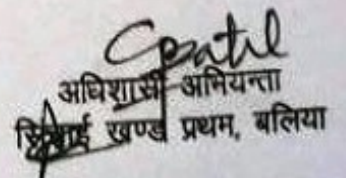 अधिशासी अभियन्ता
सिंचाई खण्ड प्रथम, बलिया